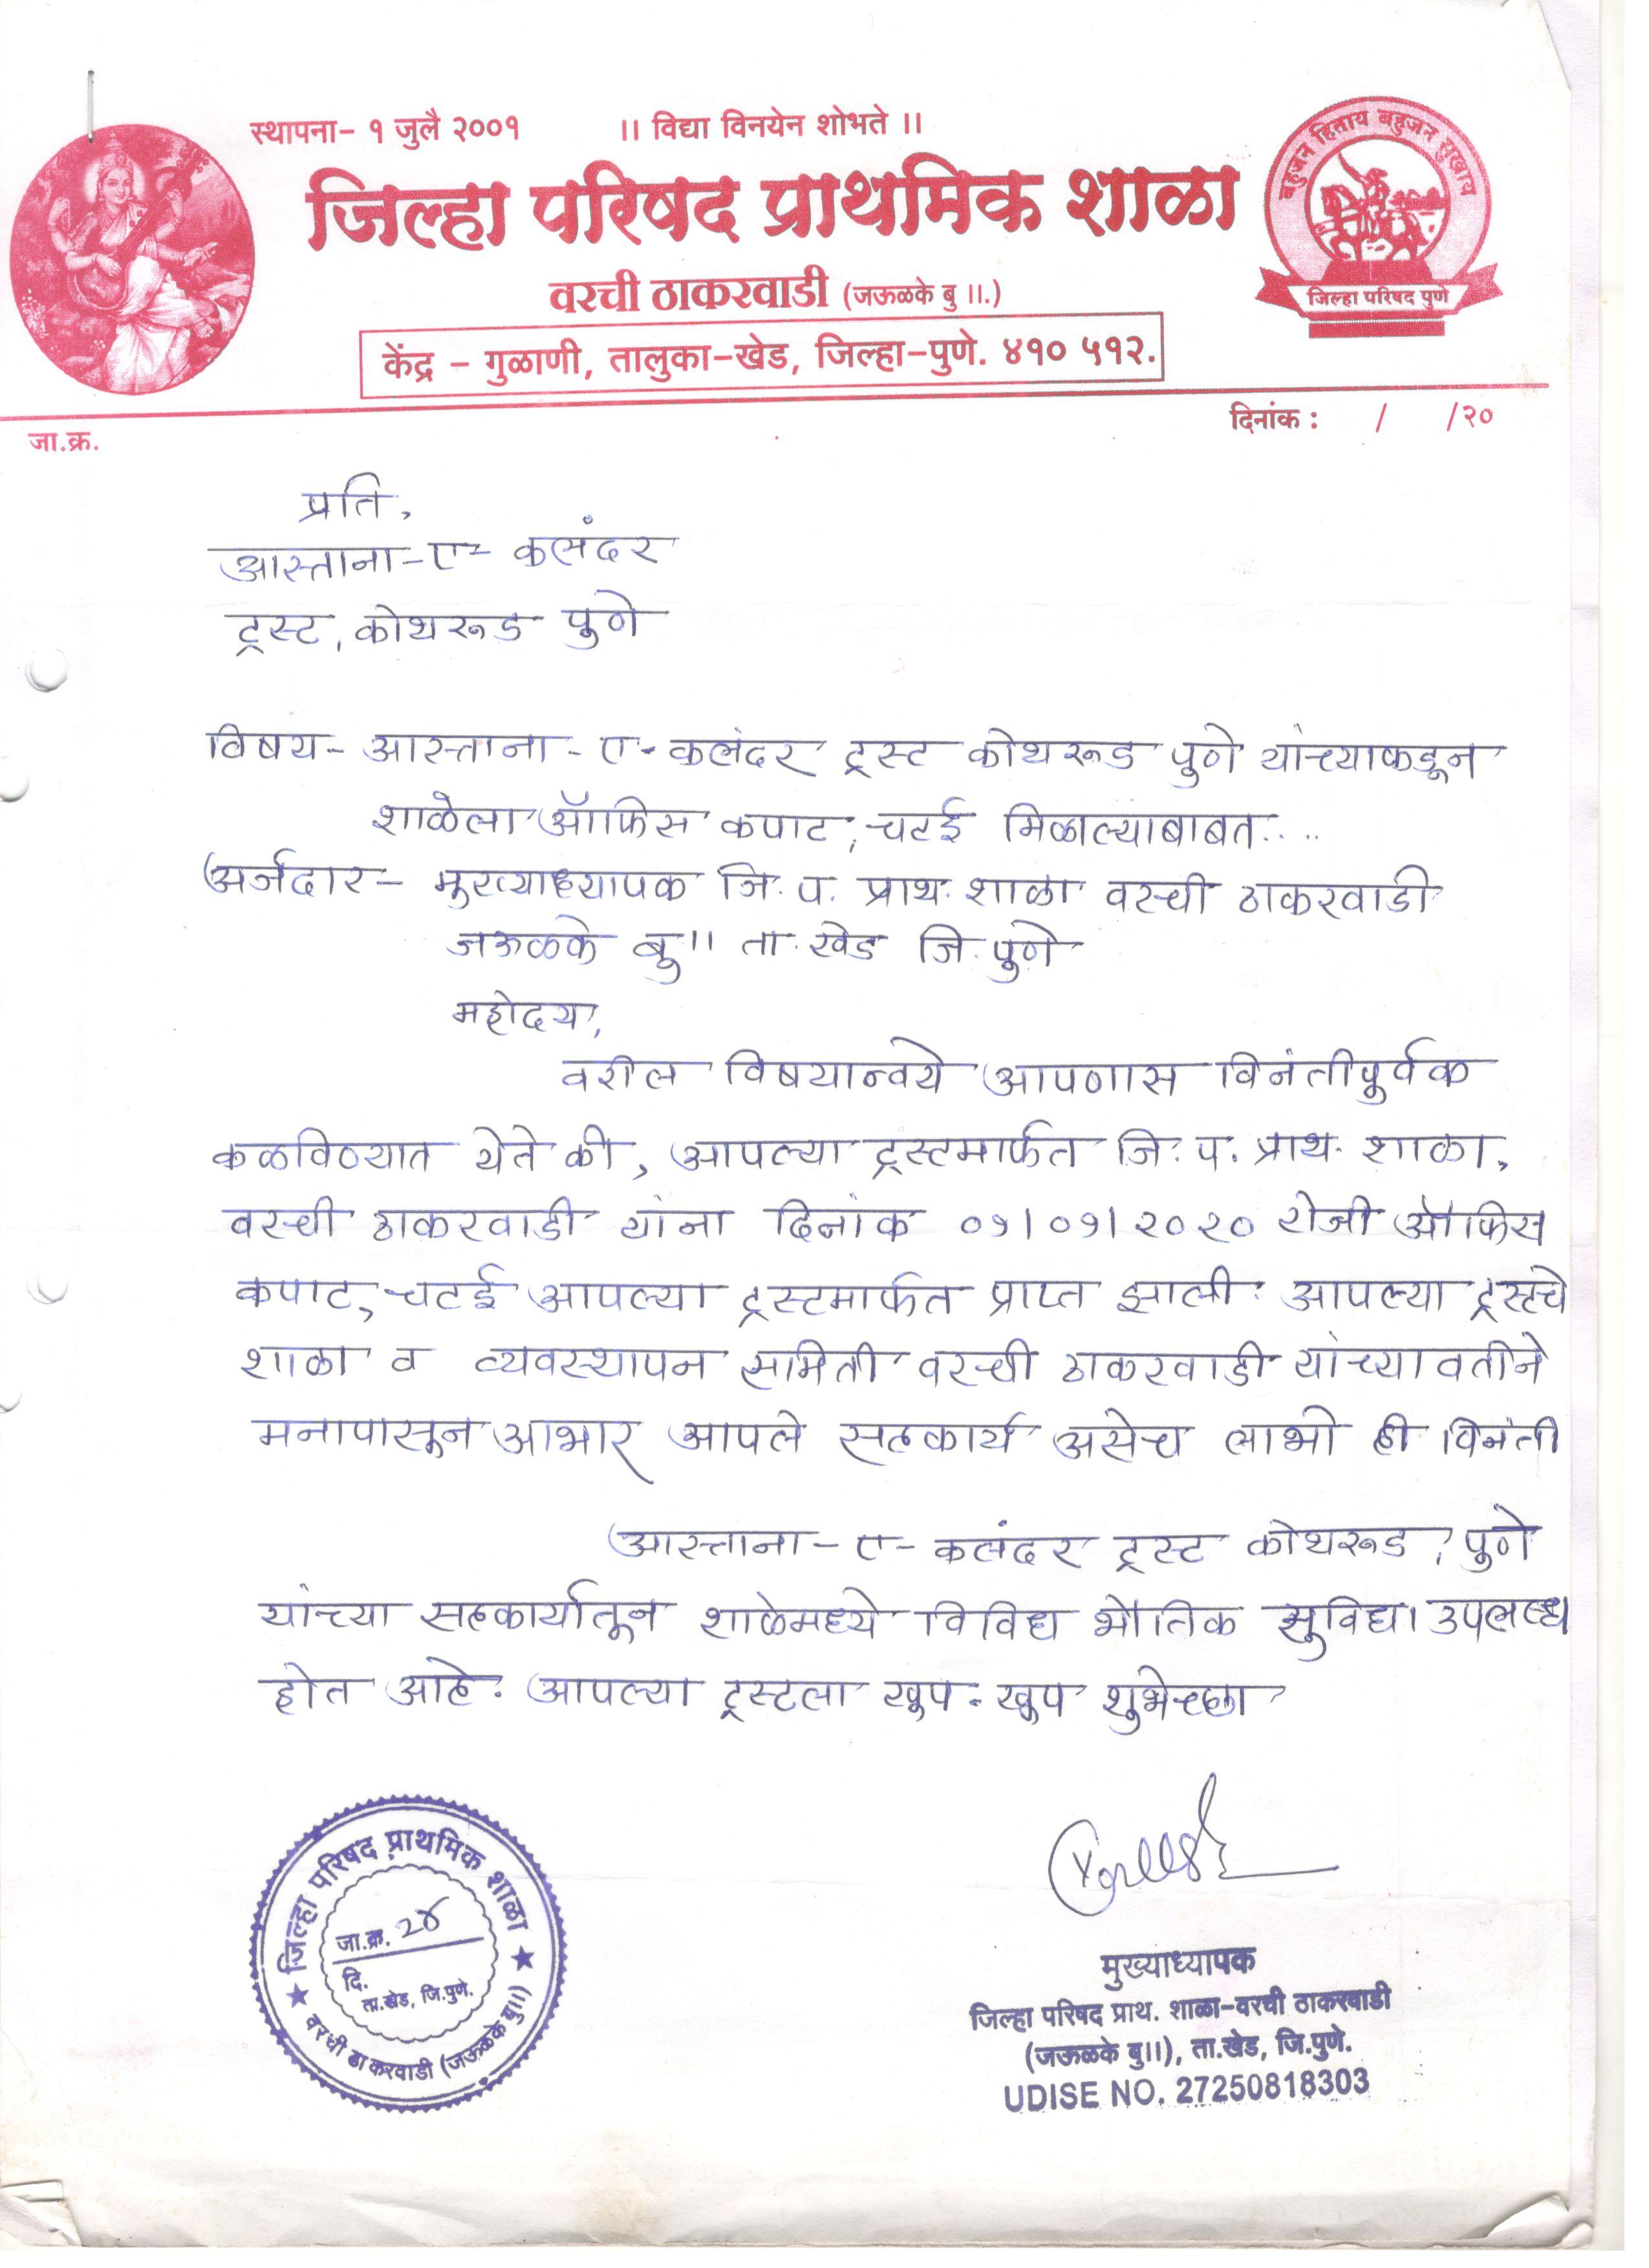 स्थापना- १ जुलै २००१
।। विद्या विनयेन शोभते ।।
बहुजन हिताय बहुजन सुखाय
जिल्हा परिषद प्राथमिक शाळा
वरची ठाकरवाडी (जऊळके बु ॥.)
जिल्हा परिषद पुणे
केंद्र - गुळाणी, तालुका-खेड, जिल्हा-पुणे. ४१० ५१२.
दिनांक : / /२०
जा.क्र.
प्रति,
आस्ताना-ए- कलंदर
ट्रस्ट, कोथरूड पुणे
विषय- आस्ताना-ए-कलंदर ट्रस्ट कोथरूड पुणे यांच्याकडून
शाळेला ऑफिस कपाट, चटई मिळाल्याबाबत....
अर्जदार- मुख्याध्यापक जि. प. प्राथ. शाळा वरची ठाकरवाडी
जऊळके बु॥ ता. खेड जि. पुणे
महोदय,
वरील विषयान्वये आपणास विनंतीपूर्वक
कळविण्यात येते की, आपल्या ट्रस्टमार्फत जि. प. प्राथ. शाळा,
वरची ठाकरवाडी यांना दिनांक ०१/०१/२०२० रोजी ऑफिस
कपाट, चटई आपल्या ट्रस्टमार्फत प्राप्त झाली. आपल्या ट्रस्टचे
शाळा व व्यवस्थापन समिती वरची ठाकरवाडी यांच्यावतीने
मनापासून आभार आपले सहकार्य असेच लाभो ही विनंती
आस्ताना-ए-कलंदर ट्रस्ट कोथरूड, पुणे
यांच्या सहकार्यातून शाळेमध्ये विविध भौतिक सुविधा उपलब्ध
होत आहे. आपल्या ट्रस्टला खूप-खूप शुभेच्छा
जिल्हा परिषद प्राथमिक शाळा
जा.क्र. २४
दि.
ता.खेड, जि.पुणे.
वरची ठाकरवाडी (जऊळके बु॥)
मुख्याध्यापक
जिल्हा परिषद प्राथ. शाळा-वरची ठाकरवाडी
(जऊळके बु॥), ता.खेड, जि.पुणे.
UDISE NO. 27250818303